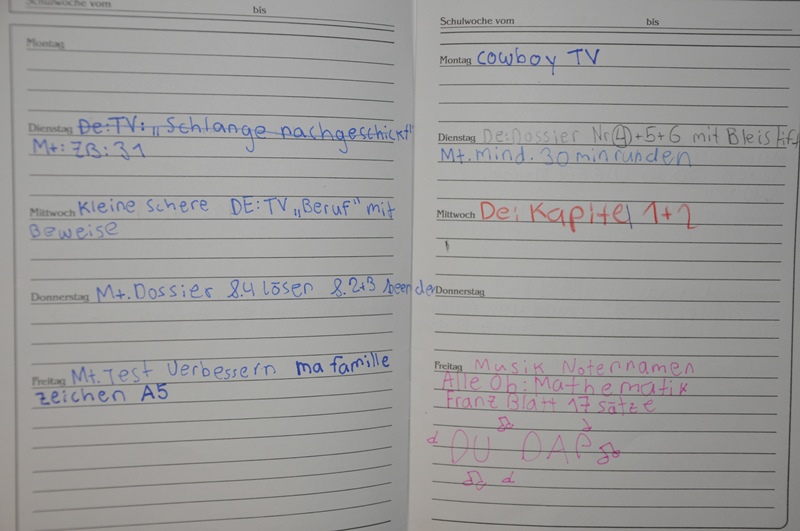 Schulwoche vom bis
Montag
Dienstag De: TV: „Schlange nachgeschickt"
Mt: ZB: 31
Mittwoch Kleine Schere DE: TV „Beruf" mit
Beweise
Donnerstag Mt. Dossier S.4 lösen S. 2+3 beenden
Freitag Mt. Test Verbessern ma famille
zeichen A5
Schulwoche vom bis
Montag Cowboy TV
Dienstag De: Dossier Nr 4+5+6 mit Bleistift
Mt. mind. 30 min runden
Mittwoch De: Kapitel 1+2
Donnerstag
Freitag Musik Noternamen
Alle Ob: Mathematik
Franz Blatt 17 sätze
DU DAP